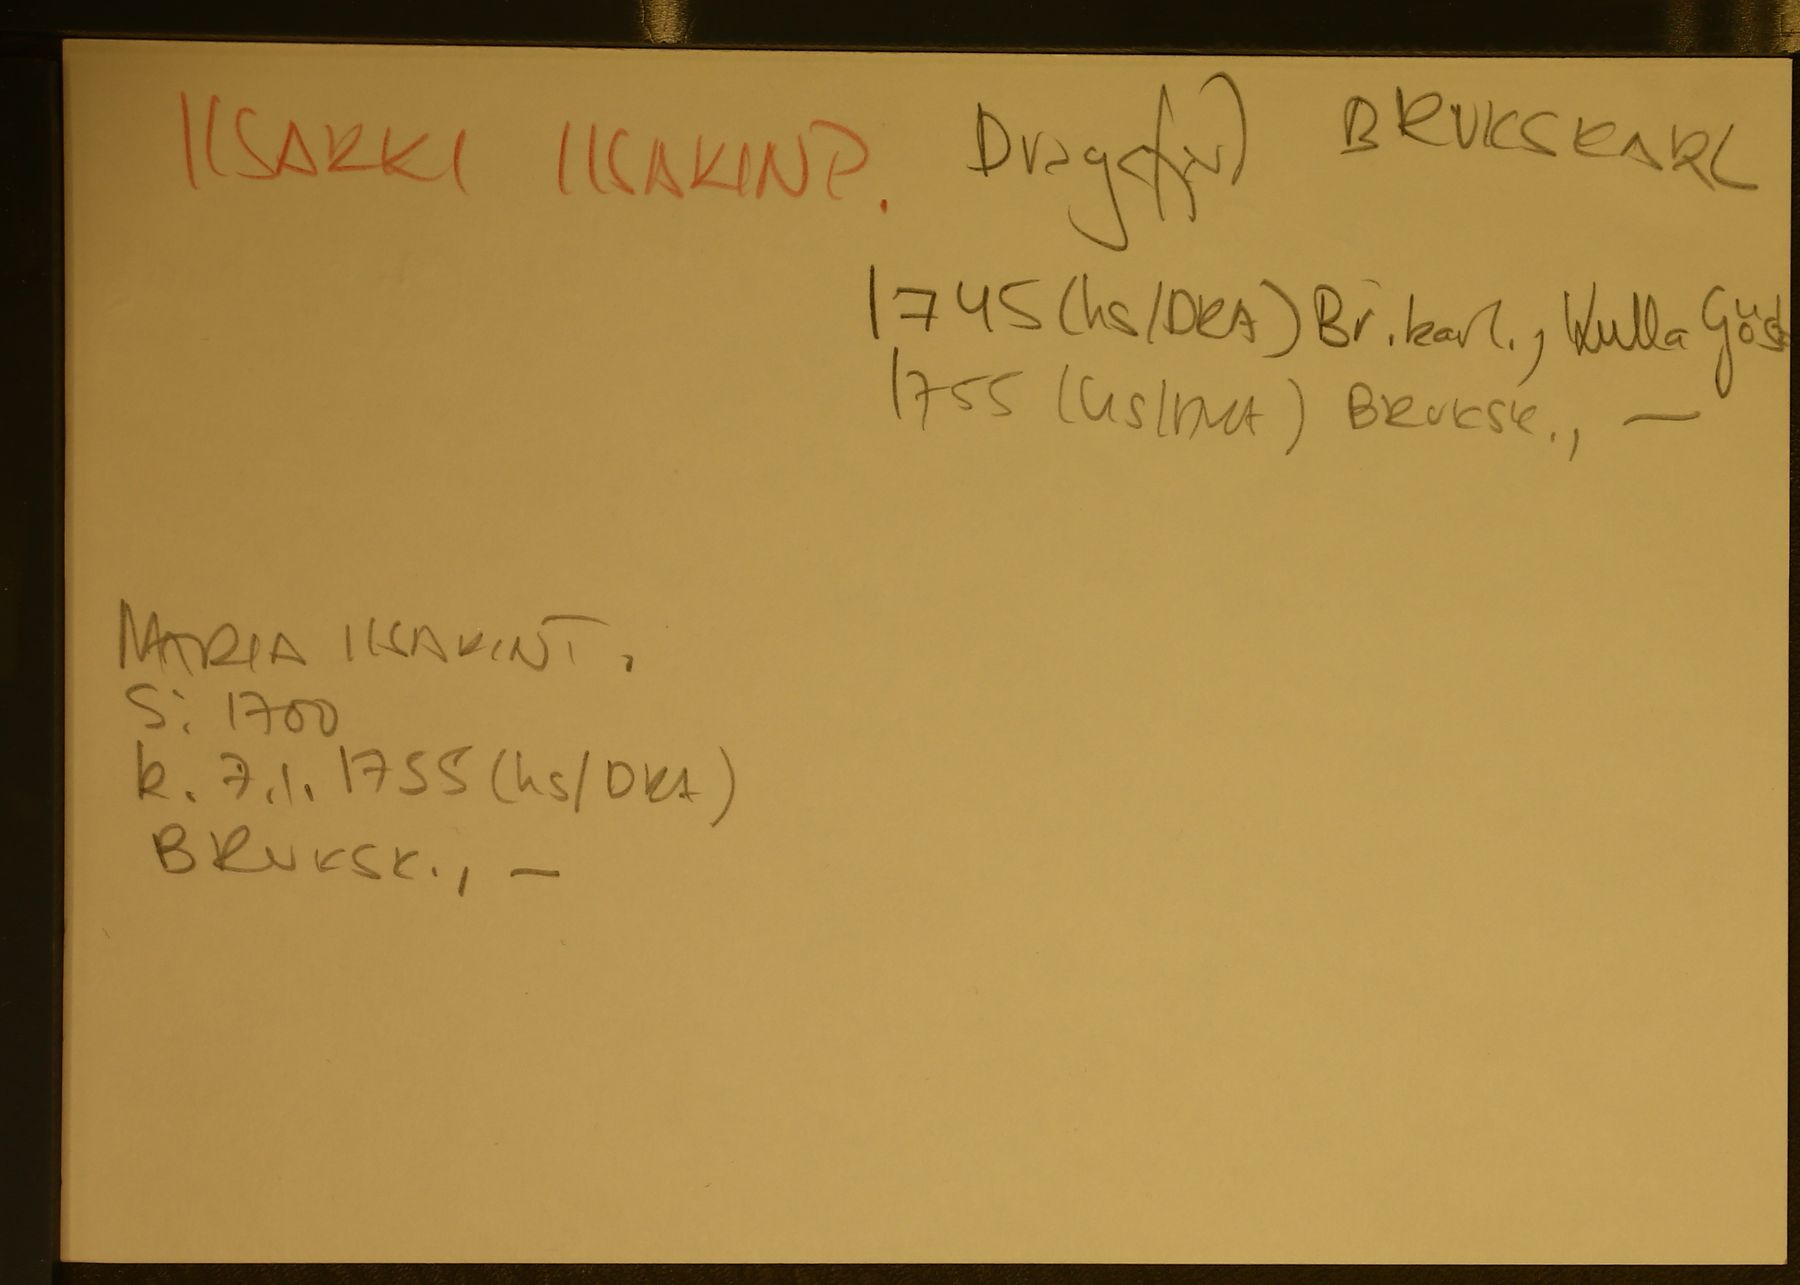 IISAKKI IISAKINP. Dragsfjärd BRUKSKARL
1745 (hs/DRA) Br.karl., Kulla Gös
1755 (hs/DRA) BRUKSK., —
MARIA IISAKINT.
S. 1700
k. 7.1.1755 (hs/DRA)
BRUKSK., —